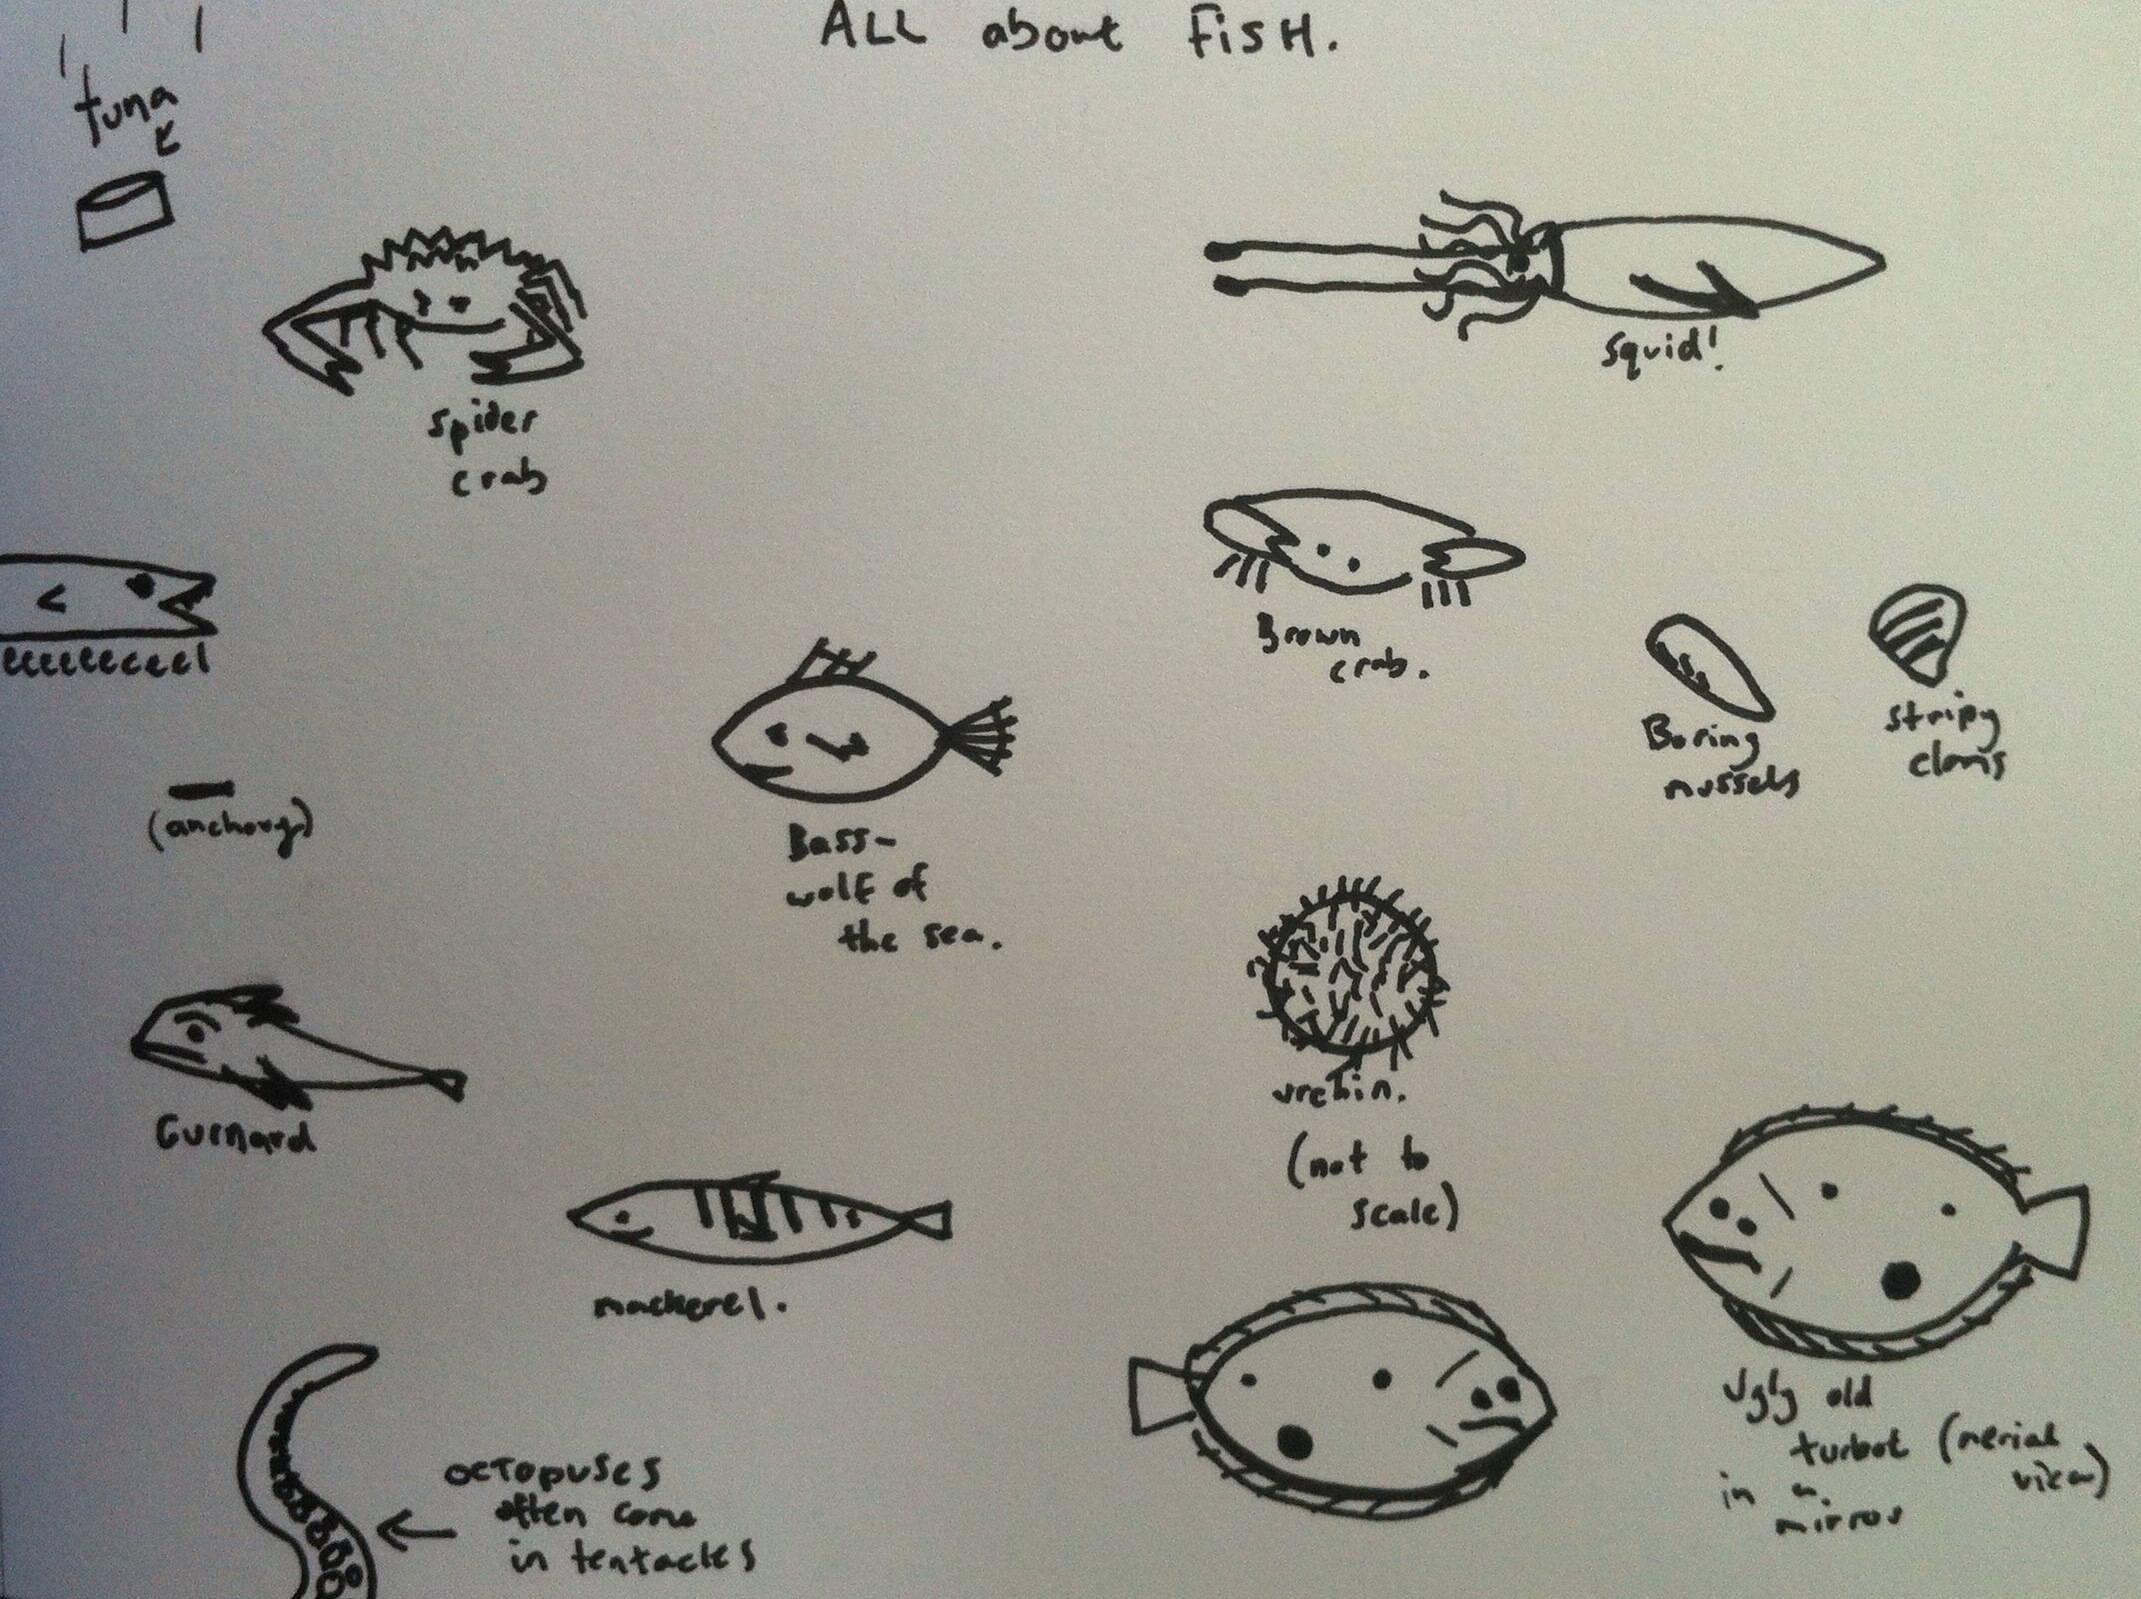 ALL about FiSH.
tuna
squid!
spider
crab
Brown
crab.
eeeeeeeeeel
Boring
mussels
stripy
clams
(anchovy)
Bass-
wolf of
the sea.
urchin.
(not to
scale)
Gurnard
mackerel.
ugly old
turbot (aerial
view)
in a
mirror
octopuses
often come
in tentacles